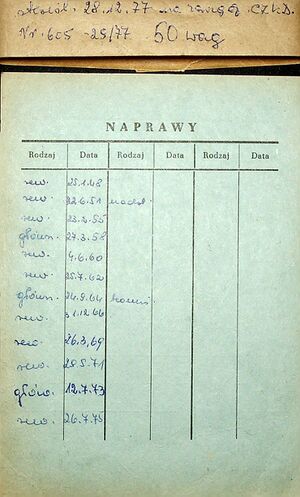 28.12.77 na
Nr. 605 - 25/77 50 wag
NAPRAWY
Rodzaj Data Rodzaj Data Rodzaj Data
rew. 25.1.48
rew. 22.6.51
rew. 23.2.55
główn. 27.3.58
rew. 4.6.60
rew. 25.7.62
główn. 24.9.64
rew. 31.12.66
rew. 26.3.69
rew. 28.5.71
główn. 12.7.73
rew. 26.7.75